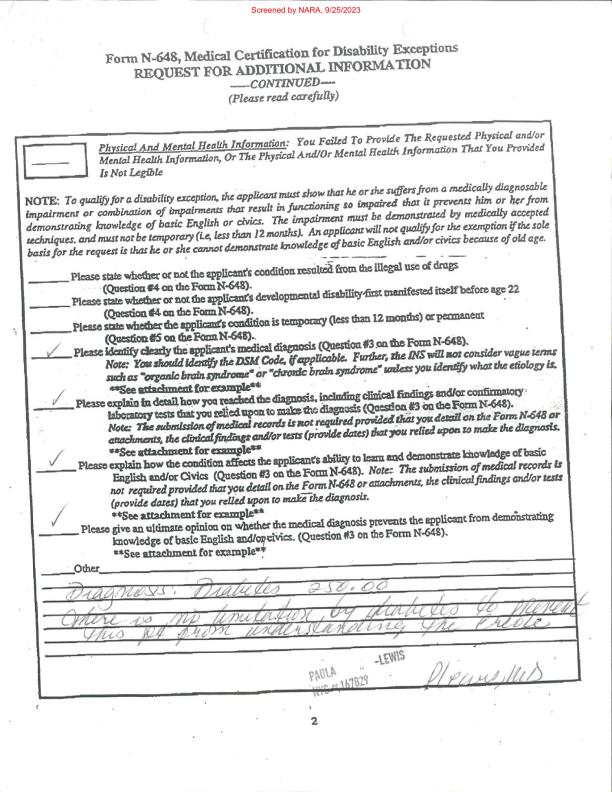 Screened by NARA, 9/25/2023
Form N-648, Medical Certification for Disability Exceptions
REQUEST FOR ADDITIONAL INFORMATION
-----CONTINUED----
(Please read carefully)
Physical And Mental Health Information: You Failed To Provide The Requested Physical and/or
Mental Health Information, Or The Physical And/Or Mental Health Information That You Provided
Is Not Legible
NOTE: To qualify for a disability exception, the applicant must show that he or she suffers from a medically diagnosable
impairment or combination of impairments that result in functioning so impaired that it prevents him or her from
demonstrating knowledge of basic English or civics. The impairment must be demonstrated by medically accepted
techniques, and must not be temporary (i.e, less than 12 months). An applicant will not qualify for the exemption if the sole
basis for the request is that he or she cannot demonstrate knowledge of basic English and/or civics because of old age.
Please state whether or not the applicant's condition resulted from the illegal use of drugs
(Question #4 on the Form N-648).
Please state whether or not the applicant's developmental disability first manifested itself before age 22
(Question #4 on the Form N-648).
Please state whether the applicant's condition is temporary (less than 12 months) or permanent
(Question #5 on the Form N-648).
Please identify clearly the applicant's medical diagnosis (Question #3 on the Form N-648).
Note: You should identify the DSM Code, if applicable. Further, the INS will not consider vague terms
such as "organic brain syndrome" or "chronic brain syndrome" unless you identify what the etiology is.
**See attachment for example**
Please explain in detail how you reached the diagnosis, including clinical findings and/or confirmatory
laboratory tests that you relied upon to make the diagnosis (Question #3 on the Form N-648).
Note: The submission of medical records is not required provided that you detail on the Form N-648 or
attachments, the clinical findings and/or tests (provide dates) that you relied upon to make the diagnosis.
**See attachment for example**
Please explain how the condition affects the applicant's ability to learn and demonstrate knowledge of basic
English and/or Civics (Question #3 on the Form N-648). Note: The submission of medical records is
not required provided that you detail on the Form N-648 or attachments, the clinical findings and/or tests
(provide dates) that you relied upon to make the diagnosis.
**See attachment for example**
Please give an ultimate opinion on whether the medical diagnosis prevents the applicant from demonstrating
knowledge of basic English and/or civics. (Question #3 on the Form N-648).
**See attachment for example**
Other
Diagnosis: Diabetes 250.00
There is no limitation by diabetes to prevent
this pt from understanding the
PAULA -LEWIS
167829
2